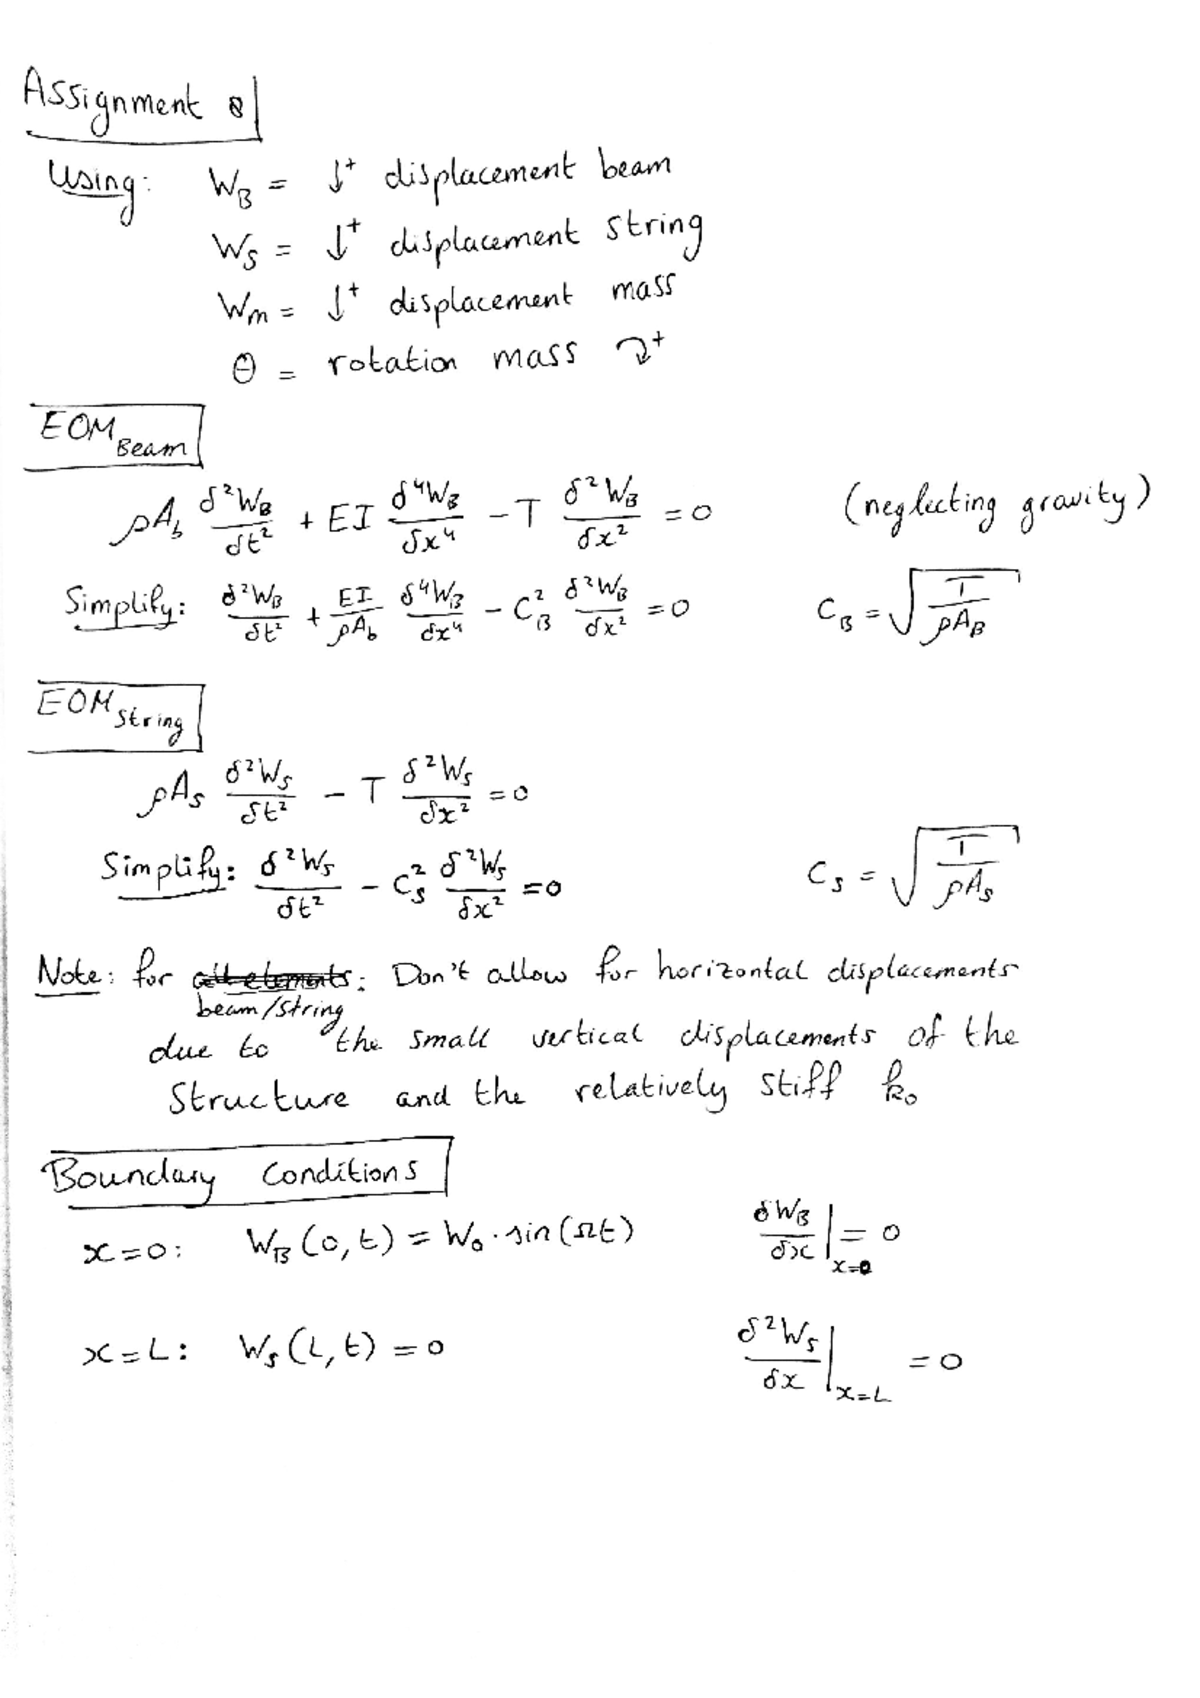 Assignment 8
Using: W_B = ↓⁺ displacement beam
W_S = ↓⁺ displacement string
W_m = ↓⁺ displacement mass
θ = rotation mass ↷⁺
EOM_Beam
ρA_b δ²W_B/δt² + EI δ⁴W_B/δx⁴ − T δ²W_B/δx² = 0 (neglecting gravity)
Simplify: δ²W_B/δt² + EI/ρA_b δ⁴W_B/δx⁴ − C_B² δ²W_B/δx² = 0 C_B = √(T/ρA_B)
EOM_String
ρA_S δ²W_S/δt² − T δ²W_S/δx² = 0
Simplify: δ²W_S/δt² − C_S² δ²W_S/δx² = 0 C_S = √(T/ρA_S)
Note: for all elements: Don't allow for horizontal displacements
beam/string
due to the small vertical displacements of the
structure and the relatively stiff k₀
Boundary Conditions
x=0: W_B(0,t) = W₀·sin(Ωt) δW_B/δx |x=0 = 0
x=L: W_S(L,t) = 0 δ²W_S/δx |x=L = 0